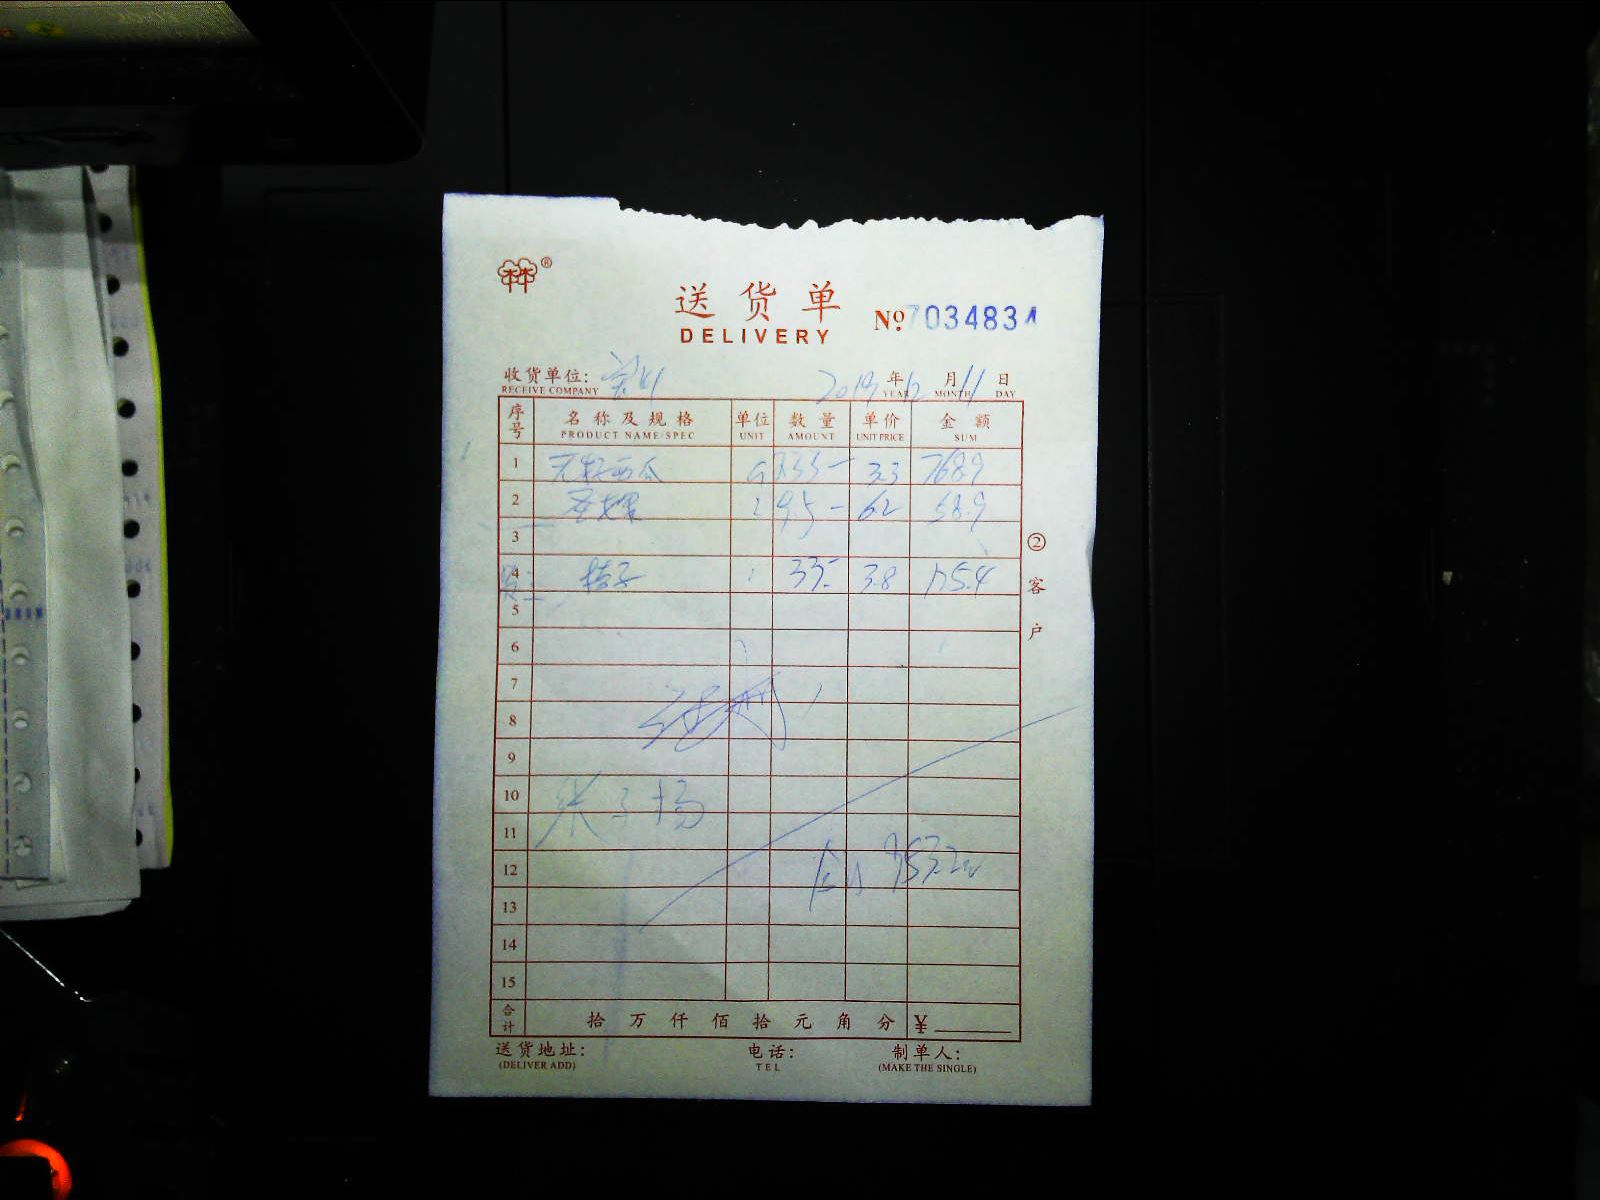 送货单
DELIVERY
№ 7034834
收货单位:
RECEIVE COMPANY
2019 年 12 月 11 日
YEAR MONTH DAY
序号 名称及规格 单位 数量 单价 金额
PRODUCT NAME/SPEC UNIT AMOUNT UNIT PRICE SUM
1 无籽西瓜 233- 3.3 768.9
2 圣女果 9.5- 6.2 58.9
3
4 桔子 33- 3.8 125.4
5
6
7
8
9
10 张子扬
11
12 953.2
13
14
15
合计 拾 万 仟 佰 拾 元 角 分 ¥
② 客户
送货地址: 电话: 制单人:
(DELIVER ADD) TEL (MAKE THE SINGLE)